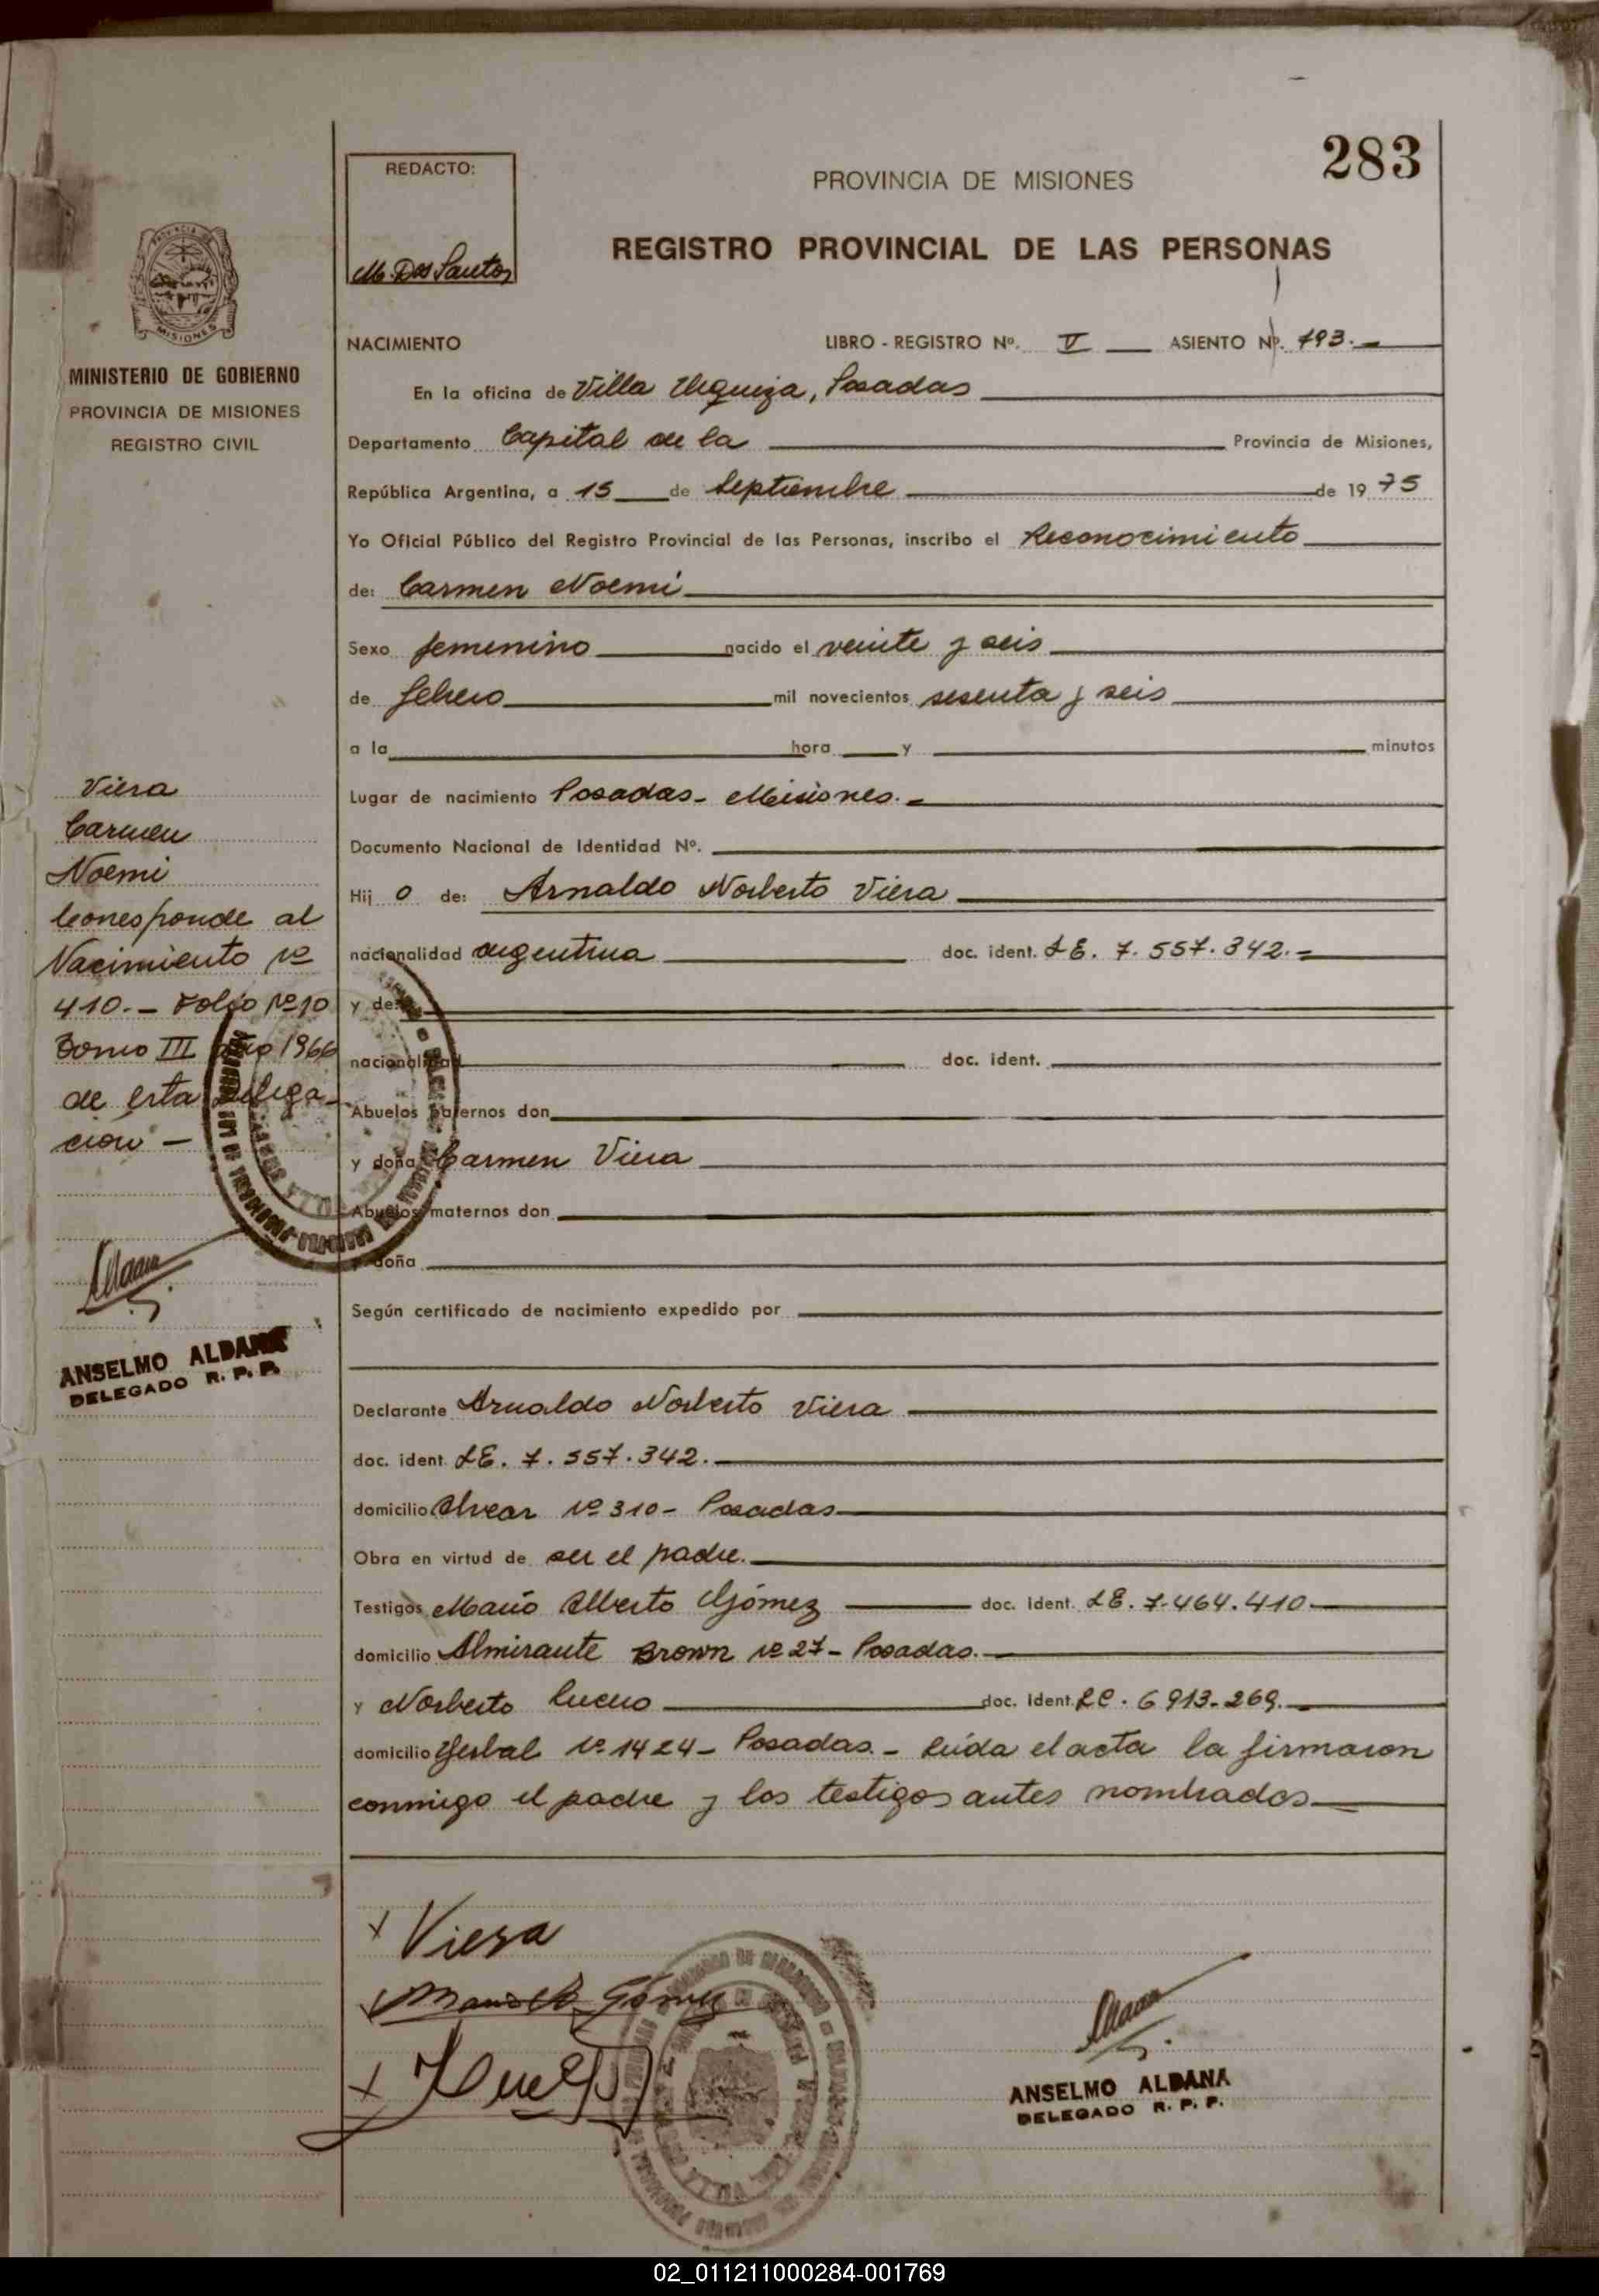 283
REDACTO:
M. Dos Santos
PROVINCIA DE MISIONES
REGISTRO PROVINCIAL DE LAS PERSONAS
MISIONES
MINISTERIO DE GOBIERNO
PROVINCIA DE MISIONES
REGISTRO CIVIL
NACIMIENTO LIBRO - REGISTRO Nº. V ASIENTO Nº. 193.-
En la oficina de Villa Urquiza, Posadas
Departamento Capital de la Provincia de Misiones,
República Argentina, a 15 de Septiembre de 1975
Yo Oficial Público del Registro Provincial de las Personas, inscribo el Reconocimiento
de: Carmen Noemi
Sexo femenino nacido el veinte y seis
de febrero mil novecientos sesenta y seis
a la hora y minutos
Lugar de nacimiento Posadas - Misiones.-
Documento Nacional de Identidad Nº.
Hij o de: Arnaldo Norberto Viera
nacionalidad argentina doc. ident. LE. 7.557.342.-
y de:
nacionalidad doc. ident.
Abuelos paternos don
y doña Carmen Viera
Abuelos maternos don
y doña
Según certificado de nacimiento expedido por
Declarante Arnaldo Norberto Viera
doc. ident. LE. 7.557.342.-
domicilio Alvear Nº 310 - Posadas
Obra en virtud de ser el padre.
Testigos Mario Alberto Gómez doc. ident. LE. 7.464.410
domicilio Almirante Brown Nº 27 - Posadas.-
y Norberto Lucero doc. ident. LE. 6913.269.
domicilio Yerbal Nº 1424 - Posadas.- Leída el acta la firmaron
conmigo el padre y los testigos antes nombrados
Viera
Carmen
Noemi
Corresponde al
Nacimiento Nº
410.- Folio Nº 10
Tomo III Año 1966
de esta Delega-
ción -
ANSELMO ALDANA
DELEGADO R. P. P.
x Viera
Gómez
ANSELMO ALDANA
DELEGADO R. P. P.
02_011211000284-001769